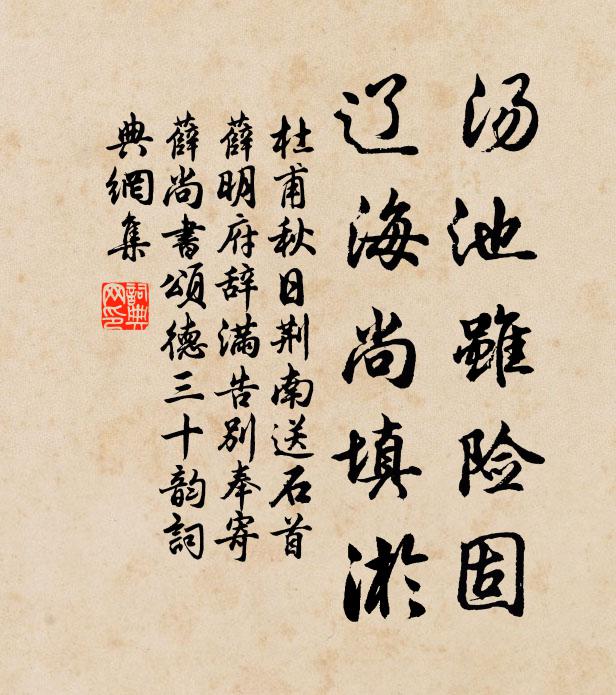 汤池虽险固
辽海尚填淤
杜甫秋日荆南送石首
薛明府辞满告别奉寄
薛尚書頌德三十韵詞
典網集
詞典
网印